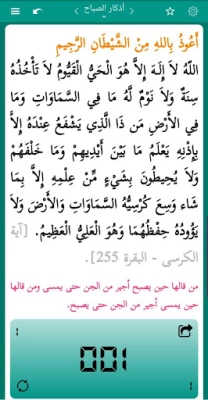 أذكار الصباح
أَعُوذُ بِاللهِ مِنْ الشَّيْطَانِ الرَّجِيمِ
اللّهُ لاَ إِلَهَ إِلاَّ هُوَ الْحَيُّ الْقَيُّومُ لاَ تَأْخُذُهُ
سِنَةٌ وَلاَ نَوْمٌ لَّهُ مَا فِي السَّمَاوَاتِ وَمَا
فِي الأَرْضِ مَن ذَا الَّذِي يَشْفَعُ عِنْدَهُ إِلاَّ
بِإِذْنِهِ يَعْلَمُ مَا بَيْنَ أَيْدِيهِمْ وَمَا خَلْفَهُمْ
وَلاَ يُحِيطُونَ بِشَيْءٍ مِّنْ عِلْمِهِ إِلاَّ بِمَا
شَاء وَسِعَ كُرْسِيُّهُ السَّمَاوَاتِ وَالأَرْضَ وَلاَ
يَؤُودُهُ حِفْظُهُمَا وَهُوَ الْعَلِيُّ الْعَظِيمُ. [آية
الكرسى - البقرة 255].
من قالها حين يصبح أجير من الجن حتى يمسى ومن قالها
حين يمسى أجير من الجن حتى يصبح.
001